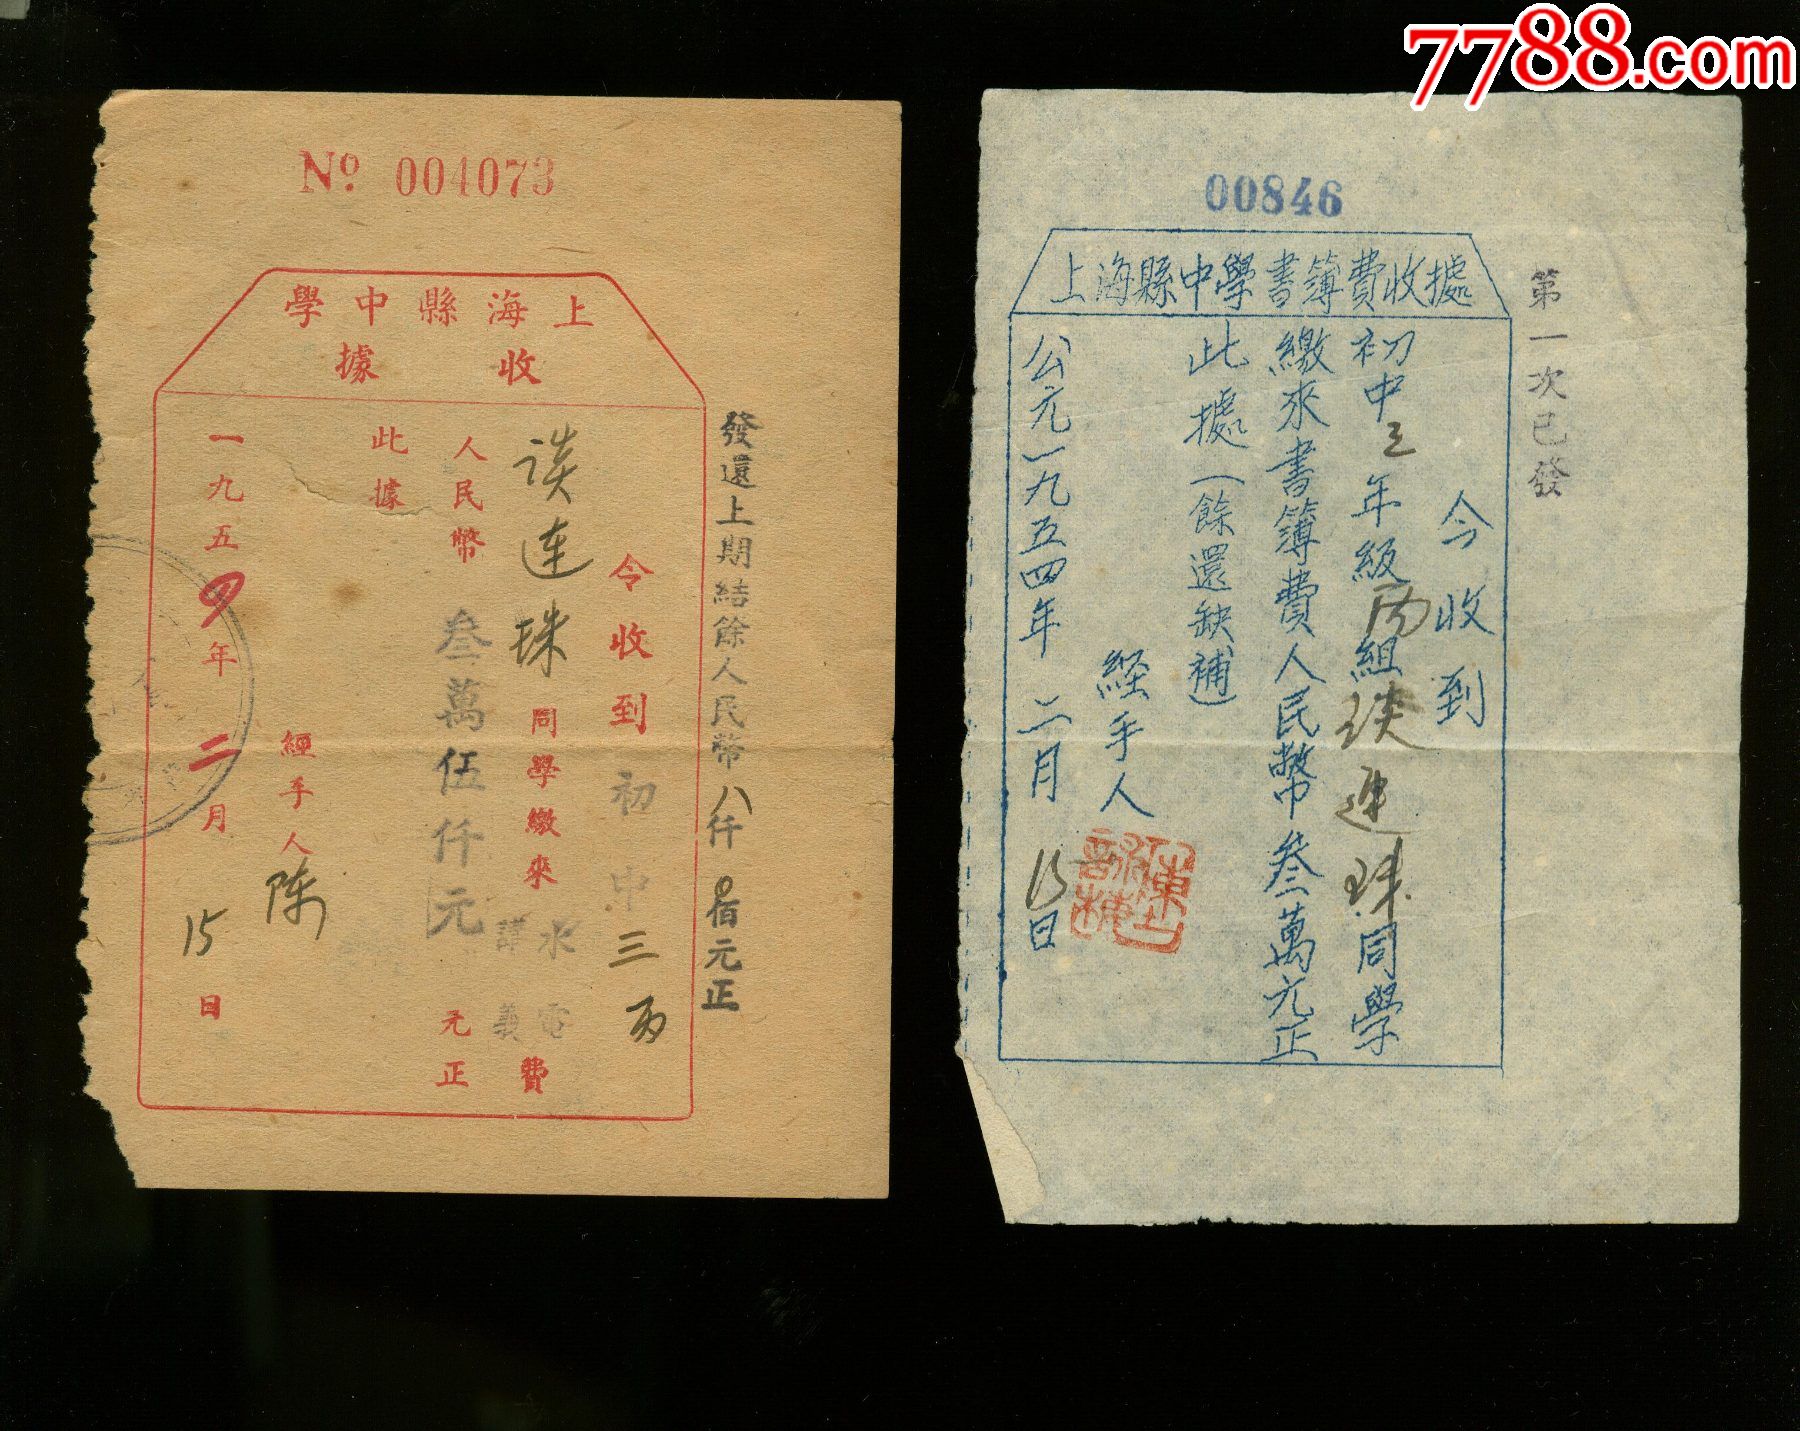 7788.com
No 004073
上海縣中學
收據
發還上期結餘人民幣八仟 佰元正
今收到初中三丙
談連珠同學繳來水電講義費
人民幣叁萬伍仟元元正
此據
經手人陈
一九五四年二月15日
00846
上海縣中學書簿費收據
第一次已發
今收到
初中三年級丙組談連珠同學
繳來書簿費人民幣叁萬元正
此據（餘還缺補）
経手人
公元一九五四年二月15日